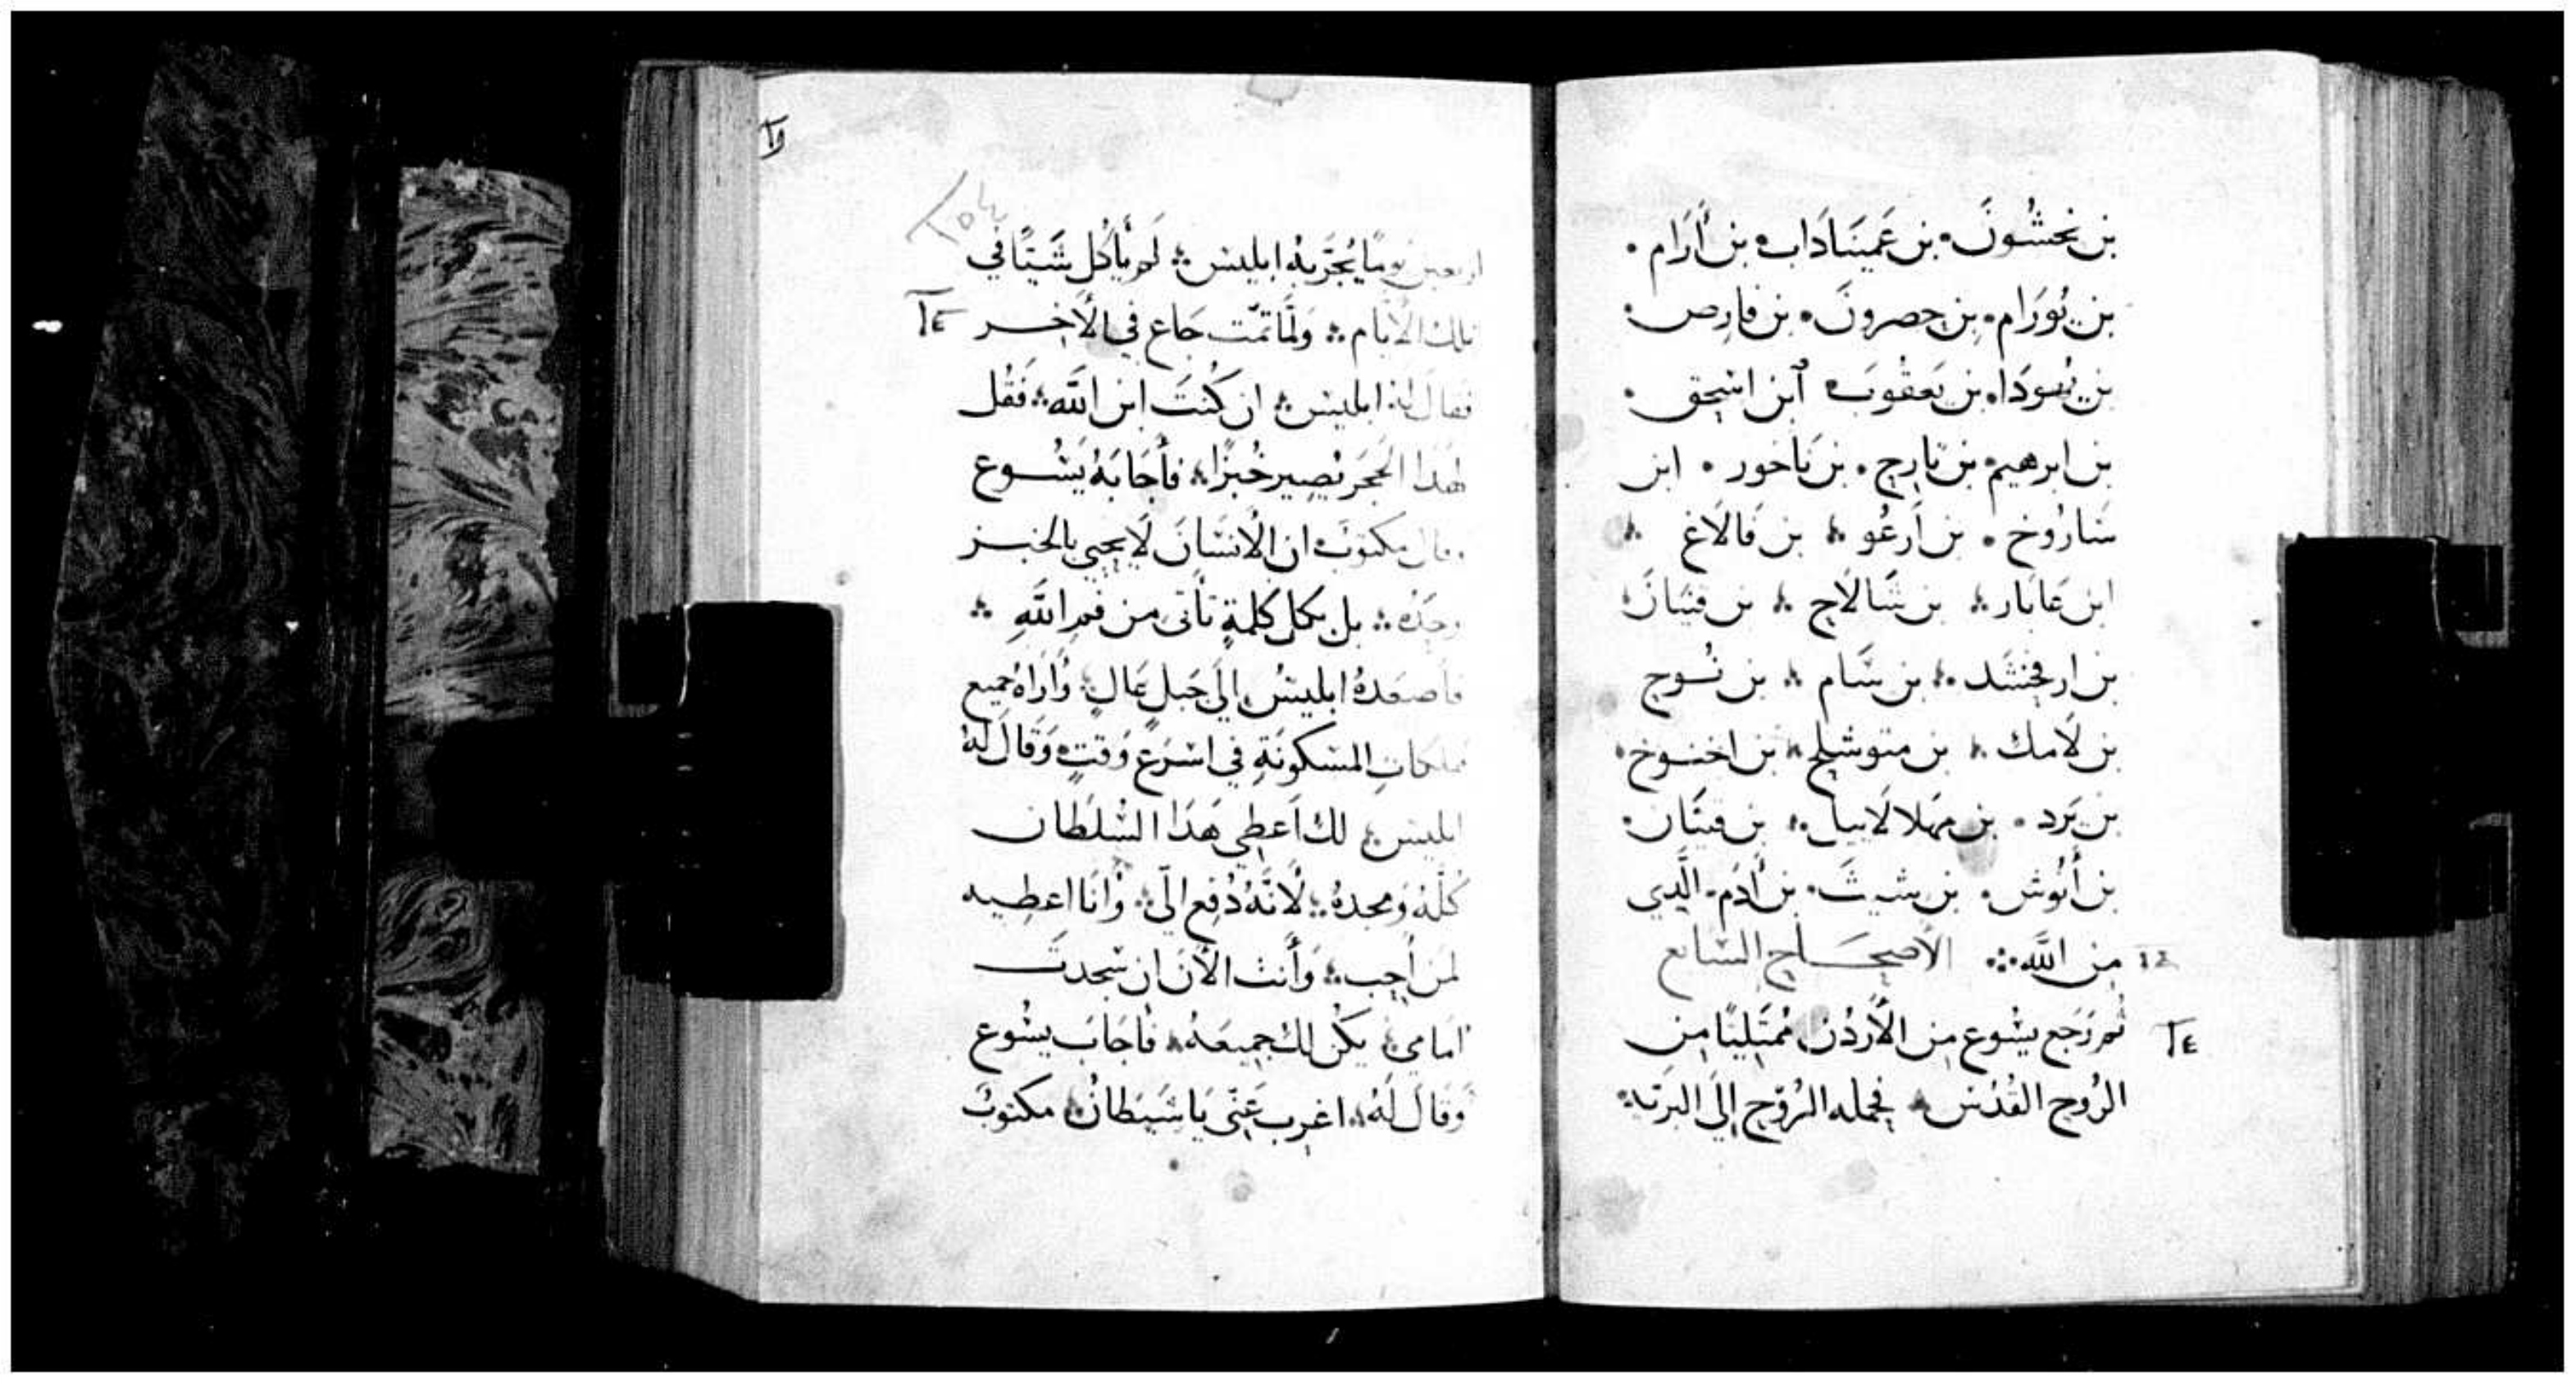 بن نحشُونَ • بن عَمينَادَاب • بن أَرَام •
بن يُورَام • بن حصرونَ • بن فارص •
بن يَهودَا • بن يَعقُوبَ • ابن اسْحق •
بن ابرهيم • بن تارح • بن نَاحُور • ابن
سَارُوخ • بن اَرعُو ⁖ بن فَالَاغ ⁖
ابن عَابَار ⁖ بن شَالَاح ⁖ بن قينَانَ ⁖
بن ارفخشد ⁖ بن سَام ⁖ بن نُوح
بن لَامك ⁖ بن متوشلح ⁖ بن اخنوخ •
بن يَرد • بن مَهلالَاييل ⁖ بن قينَان •
بن أنُوش • بن شيث • بن أدَم • الَّدي
مِن اللَّه ⁘ الاصحَاح السَابع
١٤
ثُم رَجَع يسُوع مِن الأُردُن مُمتَلِيًا مِن
الرُوح القُدُس ⁖ فحمله الرُوح إلَى البريَه ⁖
اربعين يومًا يُجَرِّبهُ ابليس ⁖ لَم يأكُل شَيئًا في
تلك الأيام ⁖ وَلَمَّا تمَّت جَاع في الأخِـر
فقالَ لَهُ ابليس ⁖ ان كُنتَ ابن اللَّه ⁖ فَقُل
لهَذا الحَجَر يَصِير خُبزًا ⁖ فأجَابَهُ يَسُوع
وقال مكتوبٌ ان الانسَانَ لَا يحيي بالخبـز
وحدَهُ ⁖ بل بكل كلمةٍ تأتى من فمِ اللَّهِ ⁖
فأصعَدهُ ابليسُ إلَى جَبلٍ عَالٍ ⁖ وَأرَاهُ جميع
مملكاتِ المسكونَةِ في اسرَع وَقتٍ وَقَالَ لَهُ
ابليس ⁖ لك اَعطي هَذا السُلطَان
كُلَّهُ وَمجدهُ ⁖ لأنَّهُ دُفِع اليَّ ⁖ وَأنَا اعطِيه
لمَن أحِب ⁖ وَأنت الأنَ ان سَجدتَ
امَامي ⁖ يكُن لك جميعَهُ ⁖ فأجَابَ يسُوع
وَقَالَ لَهُ ⁖ اغرب عَنّي يَا شَيطَانُ ⁖ مكتوبٌ